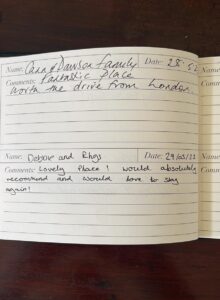 Name: Cann & Dawson family Date: 28.5.2
Comments: Fantastic Place
worth the drive from London.
Name: Debbie and Rhys Date: 29/05/22
Comments: Lovely Place! would absolutely
recommend and would love to stay
again!